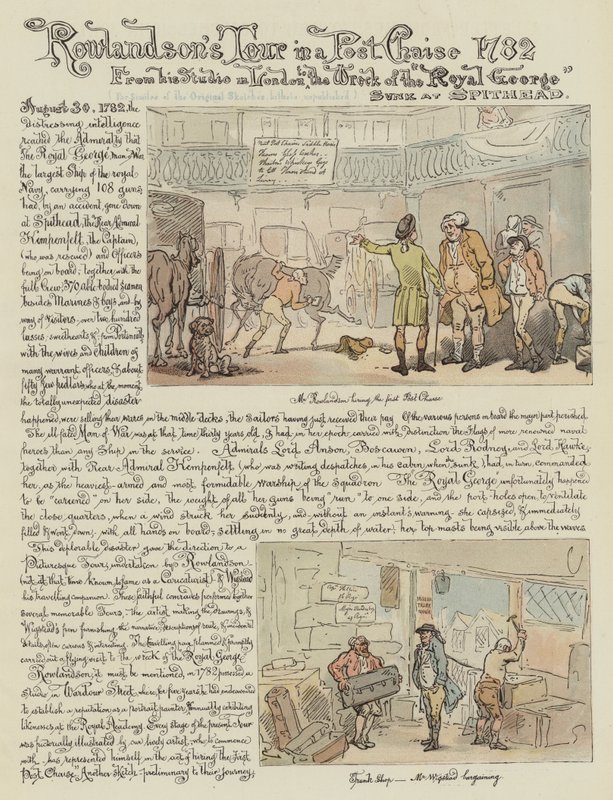 Rowlandson's Tour in a Post Chaise 1782
From his Studio in London, to the Wreck of the "Royal George"
Sunk at Spithead.
(Facsimiles of the Original Sketches, hitherto unpublished.)
August 30, 1782, the
distressing intelligence
reached the Admiralty that
The Royal George, Man o' War,
the largest Ship of the royal
Navy, carrying 108 guns,
had, by an accident, gone down
at Spithead, the Rear Admiral
Kempenfelt, the Captain,
(who was rescued) and Officers
being on board; together with the
full Crew, 370 able bodied seamen
besides Marines & boys, and by
way of visitors, over two hundred
lasses, sweethearts &c from Portsmouth
with the wives and children of
many warrant officers, & about
fifty Jew pedlars, who at the moment
the totally unexpected disaster
Mr Rowlandson hiring the first Post Chaise
happened, were selling their wares in the middle decks, the sailors having just received their pay. Of the various persons on board the major part perished.
The ill-fated Man of War, was at that time, thirty years old, & had in her epoch, carried with distinction the Flags of more renowned naval
heroes than any Ship in the service. Admirals Lord Anson, Boscawen, Lord Rodney, and Lord Hawke,
together with Rear Admiral Kempenfelt (who was writing despatches in his cabin, when sunk,) had, in turn, commanded
her, as the heaviest-armed and most formidable warship of the Squadron. The Royal George unfortunately happened
to be "careened" on her side, the weight of all her guns being "run" to one side, and the port holes open, to ventilate
the close quarters, when a wind struck her suddenly, and without an instant's warning she capsized, & immediately
filled & went down, with all hands on board; settling in no great depth of water; her top masts being visible above the waves.
This deplorable disaster gave the direction to a
Picturesque Tour, undertaken by Rowlandson
(not, at that time, known to fame as a Caricaturist) & Wigstead
his travelling companion. These faithful comrades performed together
several memorable Tours, the artist making the drawings, &
Wigstead's pen furnishing the narrative, descriptions of route, & incidents
studies often curious & interesting. The travelling party, planned & promptly
carried out a flying visit to the wreck of the Royal George.
Rowlandson, it must be mentioned, in 1782 possessed a
Studio in Wardour Street, where, for five years he had endeavoured
to establish a reputation as a portrait painter, annually exhibiting
likenesses at the Royal Academy. Every stage of the present Tour
was pictorially illustrated by our lively artist, who, to commence
with, has represented himself in the act of hiring the First
Post Chaise. Another sketch - preliminary to their journey;
Trunk Shop — Mr Wigstead bargaining.